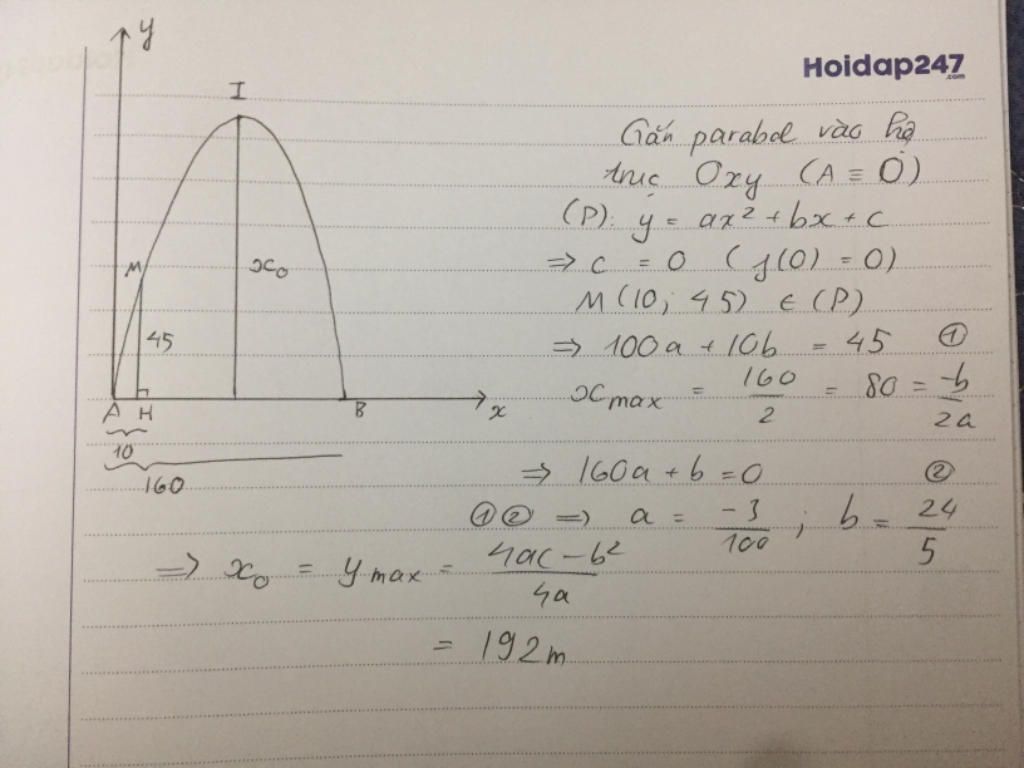 Hoidap247
.com
y
I
M
x₀
45
A H B x
10
160
Gắn parabol vào hệ
trục Oxy (A ≡ O)
(P): y = ax² + bx + c
=> c = 0 (f(0) = 0)
M(10; 45) ∈ (P)
=> 100a + 10b = 45 ①
x_max = 160/2 = 80 = -b/2a
=> 160a + b = 0 ②
①② => a = -3/100 ; b = 24/5
=> x₀ = y_max = 4ac - b²/4a
= 192m